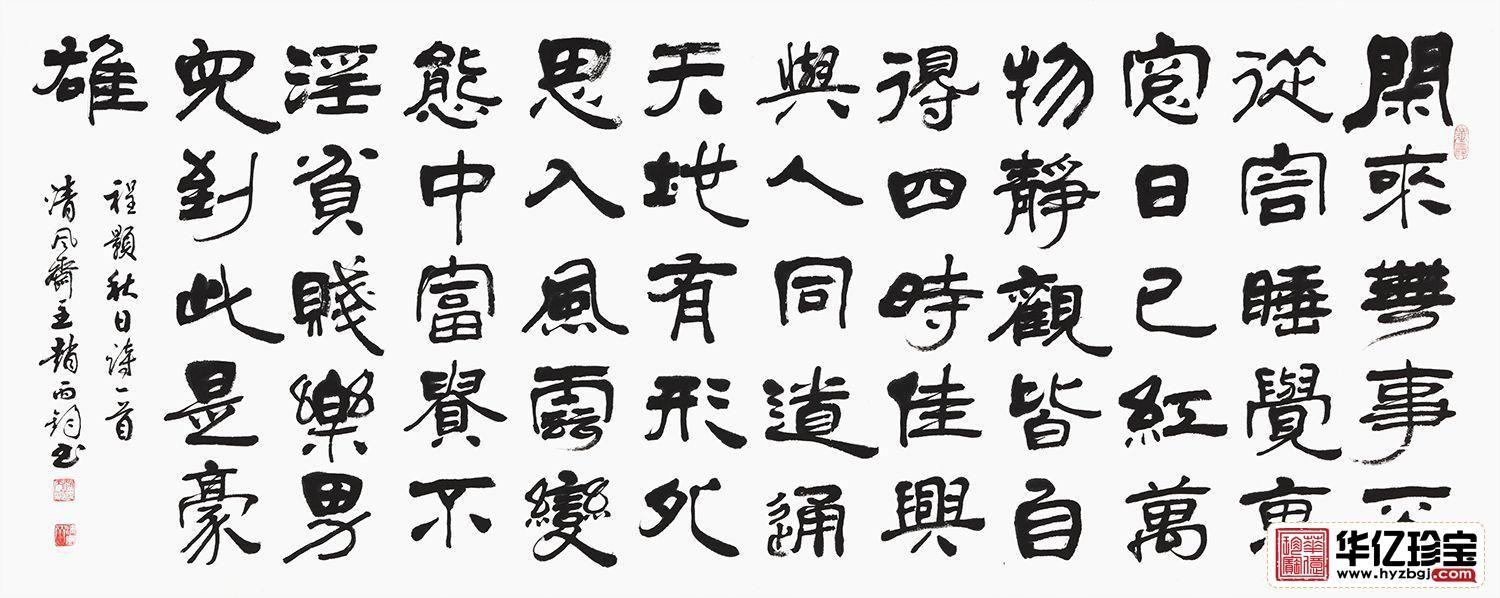 閑來無事不
從容睡覺東
窗日已紅萬
物靜觀皆自
得四時佳興
與人同道通
天地有形外
思入風雲變
態中富貴不
淫貧賤樂男
兒到此是豪
雄
程顥秋日詩一首
清風齋主趙書
华亿珍宝
www.hyzbgj.com